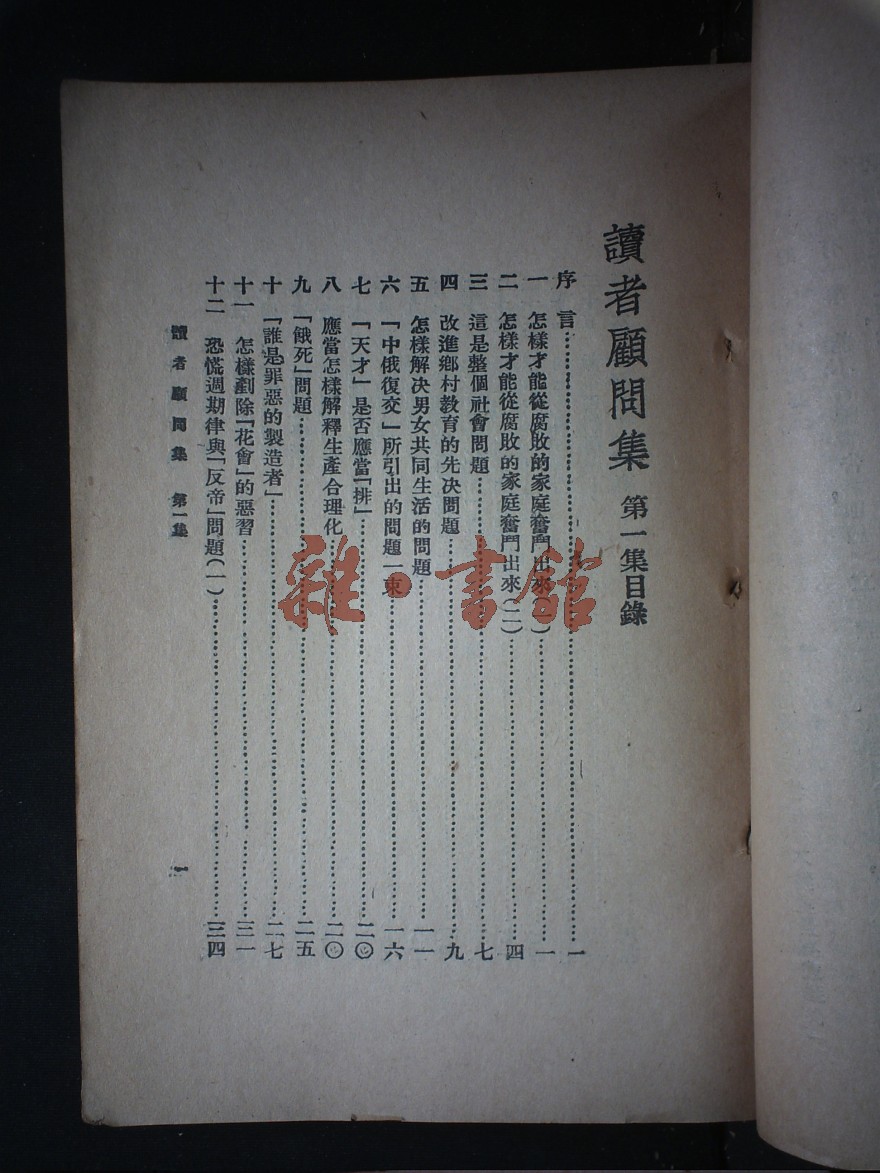 讀者顧問集 第一集目錄
序言……一
一 怎樣才能從腐敗的家庭奮鬥出來(一)……一
二 怎樣才能從腐敗的家庭奮鬥出來(二)……四
三 這是整個社會問題……七
四 改進鄉村教育的先决問題……九
五 怎樣解决男女共同生活的問題……一一
六 「中俄復交」所引出的問題一束……一六
七 「天才」是否應當「排」……二〇
八 應當怎樣解釋生產合理化……二〇
九 「餓死」問題……二五
十 「誰是罪惡的製造者」……二七
十一 怎樣剷除「花會」的惡習……三一
十二 恐慌週期律與「反帝」問題(一)……三四
讀者顧問集 第一集 一
雜·書館